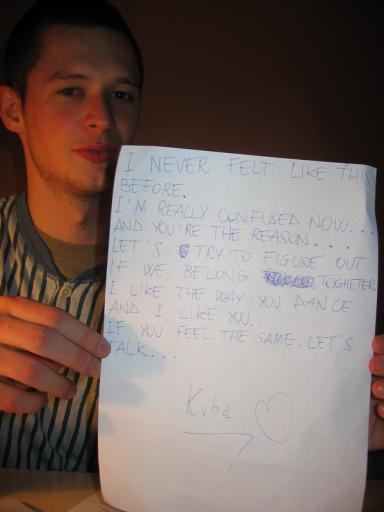 I NEVER FELT LIKE THIS
BEFORE.
I'M REALLY CONFUSED NOW...
AND YOU'RE THE REASON....
LET'S TRY TO FIGURE OUT
IF WE BELONG TOGHETER
I LIKE THE WAY YOU DANCE
AND I LIKE YOU.
IF YOU FEEL THE SAME, LET'S
TALK...
Kuba